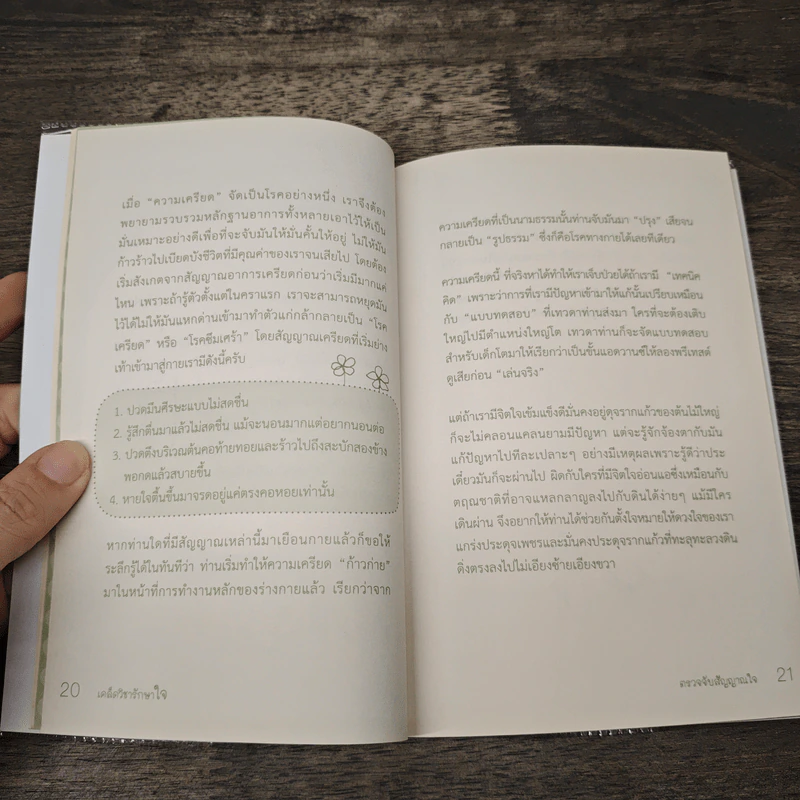 เมื่อ “ความเครียด” จัดเป็นโรคอย่างหนึ่ง เราจึงต้อง
พยายามรวบรวมหลักฐานอาการทั้งหลายเอาไว้ให้เป็น
มั่นเหมาะอย่างดีเพื่อที่จะจับมันให้มั่นคั้นให้อยู่ ไม่ให้มัน
ก้าวร้าวไปเบียดบังชีวิตที่มีคุณค่าของเราจนเสียไป โดยต้อง
เริ่มสังเกตจากสัญญาณอาการเครียดก่อนว่าเริ่มมีมากแค่
ไหน เพราะถ้ารู้ตัวตั้งแต่ในคราแรก เราจะสามารถหยุดมัน
ไว้ได้ไม่ให้มันแหกด่านเข้ามาทำตัวแก่กล้ากลายเป็น “โรค
เครียด” หรือ “โรคซึมเศร้า” โดยสัญญาณเครียดที่เริ่มย่าง
เท้าเข้ามาสู่กายเรามีดังนี้ครับ
1. ปวดมึนศีรษะแบบไม่สดชื่น
2. รู้สึกตื่นมาแล้วไม่สดชื่น แม้จะนอนมากแต่อยากนอนต่อ
3. ปวดตึงบริเวณต้นคอท้ายทอยและร้าวไปถึงสะบักสองข้าง
พอกดแล้วสบายขึ้น
4. หายใจตื้นขึ้นมาจรดอยู่แค่ตรงคอหอยเท่านั้น
หากท่านใดที่มีสัญญาณเหล่านี้มาเยือนกายแล้วก็ขอให้
ระลึกรู้ได้ในทันทีว่า ท่านเริ่มทำให้ความเครียด “ก้าวก่าย”
มาในหน้าที่การทำงานหลักของร่างกายแล้ว เรียกว่าจาก
20 เคล็ดวิชารักษาใจ
ความเครียดที่เป็นนามธรรมนั้นท่านจับมันมา “ปรุง” เสียจน
กลายเป็น “รูปธรรม” ซึ่งก็คือโรคทางกายได้เลยทีเดียว
ความเครียดนี้ ที่จริงหาได้ทำให้เราเจ็บป่วยได้ถ้าเรามี “เทคนิค
คิด” เพราะว่าการที่เรามีปัญหาเข้ามาให้แก้นั้นเปรียบเหมือน
กับ “แบบทดสอบ” ที่เทวดาท่านส่งมา ใครที่จะต้องเติบ
ใหญ่ไปมีตำแหน่งใหญ่โต เทวดาท่านก็จะจัดแบบทดสอบ
สำหรับเด็กโตมาให้เรียกว่าเป็นชั้นแอดวานซ์ให้ลองพรีเทสต์
ดูเสียก่อน “เล่นจริง”
แต่ถ้าเรามีจิตใจเข้มแข็งดีมั่นคงอยู่ดุจรากแก้วของต้นไม้ใหญ่
ก็จะไม่คลอนแคลนยามมีปัญหา แต่จะรู้จักจ้องตากับมัน
แก้ปัญหาไปทีละเปลาะๆ อย่างมีเหตุผลเพราะรู้ดีว่าประ
เดี๋ยวมันก็จะผ่านไป ผิดกับใครที่มีจิตใจอ่อนแอซึ่งเหมือนกับ
ตฤณชาติที่อาจแหลกลาญลงไปกับดินได้ง่ายๆ แม้มีใคร
เดินผ่าน จึงอยากให้ท่านได้ช่วยกันตั้งใจหมายให้ดวงใจของเรา
แกร่งประดุจเพชรและมั่นคงประดุจรากแก้วที่ทะลุทะลวงดิน
ดิ่งตรงลงไปไม่เอียงซ้ายเอียงขวา
ตรวจจับสัญญาณใจ 21